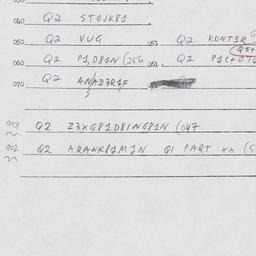 040 Q2 STOJK81
050 Q2 VUG 051 Q2 KONT3R
060 Q2 P1,D81N (256 061, Q2
070 Q2 ANAD3R1F
901 Q2 Z3XG81D81NG81N (047
902 Q2 ARANK81M1N Q1 PART ** (5